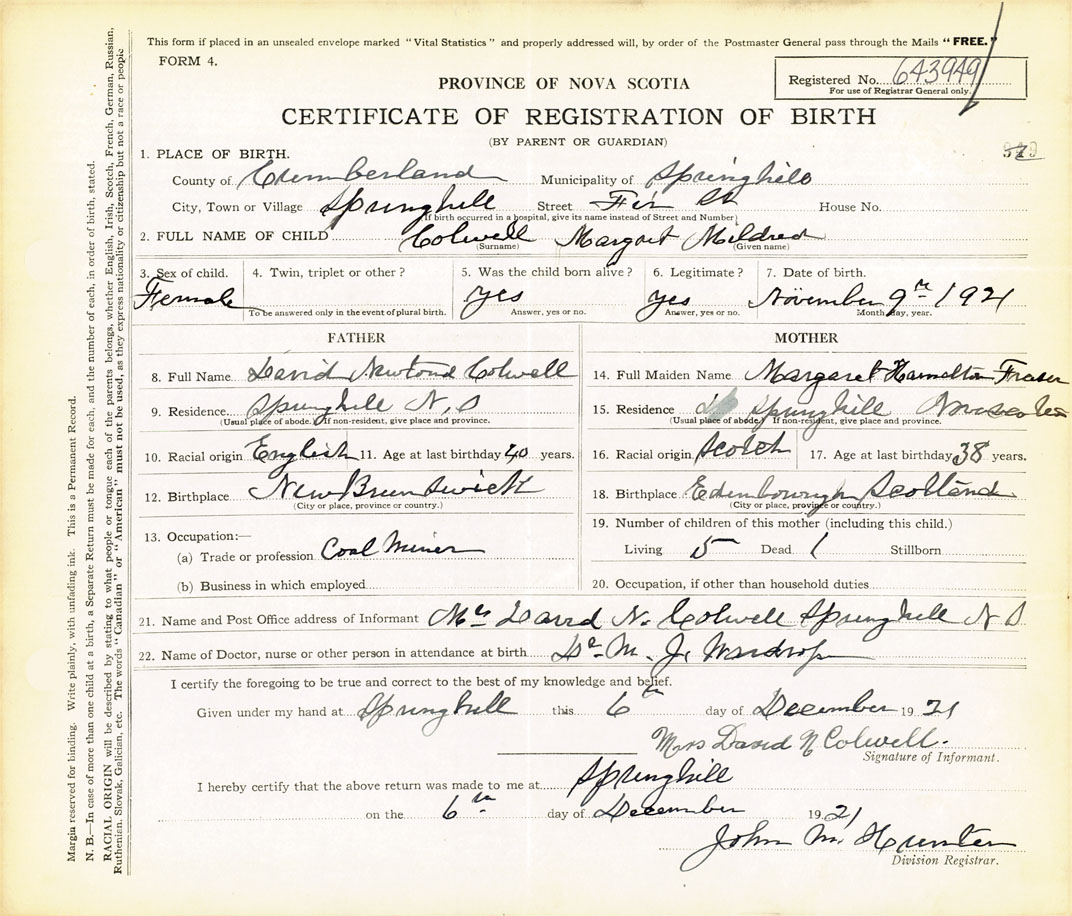 This form if placed in an unsealed envelope marked "Vital Statistics" and properly addressed will, by order of the Postmaster General pass through the Mails "FREE."
FORM 4.
Registered No. 643949
For use of Registrar General only.
PROVINCE OF NOVA SCOTIA
CERTIFICATE OF REGISTRATION OF BIRTH
(BY PARENT OR GUARDIAN)
1. PLACE OF BIRTH.
County of Cumberland Municipality of Springhill
City, Town or Village Springhill Street Fir St House No.
(If birth occurred in a hospital, give its name instead of Street and Number)
2. FULL NAME OF CHILD Colwell Margaret Mildred
(Surname) (Given name)
3. Sex of child. 4. Twin, triplet or other? 5. Was the child born alive? 6. Legitimate? 7. Date of birth.
Female yes yes November 9th 1921
To be answered only in the event of plural birth. Answer, yes or no. Answer, yes or no. Month day, year.
FATHER MOTHER
8. Full Name David Newtond Colwell 14. Full Maiden Name Margaret Hamelton Fraser
9. Residence Springhill N.S 15. Residence Springhill
(Usual place of abode. If non-resident, give place and province. (Usual place of abode. If non-resident, give place and province.
10. Racial origin English 11. Age at last birthday 40 years. 16. Racial origin Scotch 17. Age at last birthday 38 years.
12. Birthplace New Brunswick 18. Birthplace Edinbourgh Scotland
(City or place, province or country.) (City or place, province or country.)
13. Occupation:— 19. Number of children of this mother (including this child.)
(a) Trade or profession Coal Miner Living 5 Dead 1 Stillborn
(b) Business in which employed 20. Occupation, if other than household duties
21. Name and Post Office address of Informant Mrs David N. Colwell Springhill N S
22. Name of Doctor, nurse or other person in attendance at birth. Dr. M. J. Wardrope
I certify the foregoing to be true and correct to the best of my knowledge and belief.
Given under my hand at Springhill this 6th day of December 1921
Mrs David N Colwell.
Signature of Informant.
I hereby certify that the above return was made to me at Springhill
on the 6th day of December 1921
John M. Hunter
Division Registrar.
Margin reserved for binding. Write plainly, with unfading ink. This is a Permanent Record.
N. B.—In case of more than one child at a birth, a Separate Return must be made for each, and the number of each, in order of birth, stated.
RACIAL ORIGIN will be described by stating to what people or tongue each of the parents belongs, whether English, Irish, Scotch, French, German, Russian,
Ruthenian, Slovak, Galician, etc. The words "Canadian" or "American" must not be used, as they express nationality or citizenship but not a race or people